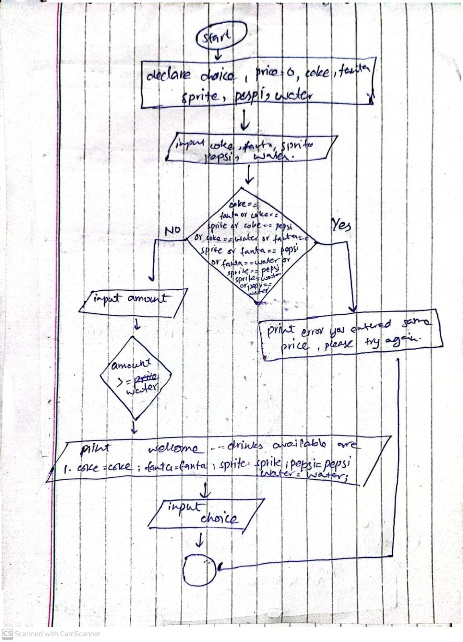 start
declare choice, price=0, coke, fanta
sprite, pespi, water
input coke, fanta, sprite
pepsi, water.
coke==
fanta or coke==
sprite or coke == pepsi
or coke==water or fanta==
sprite or fanta== pepsi
or fanta==water or
sprite == pepsi
sprite==water
or pepsi==
water
NO
Yes
input amount
print error you entered same
price, please try again.
amount
>=
water
print welcome -- drinks available are
1. coke=coke; fanta=fanta; sprite=sprite; pepsi=pepsi
water=water;
input
choice
CS Scanned with CamScanner